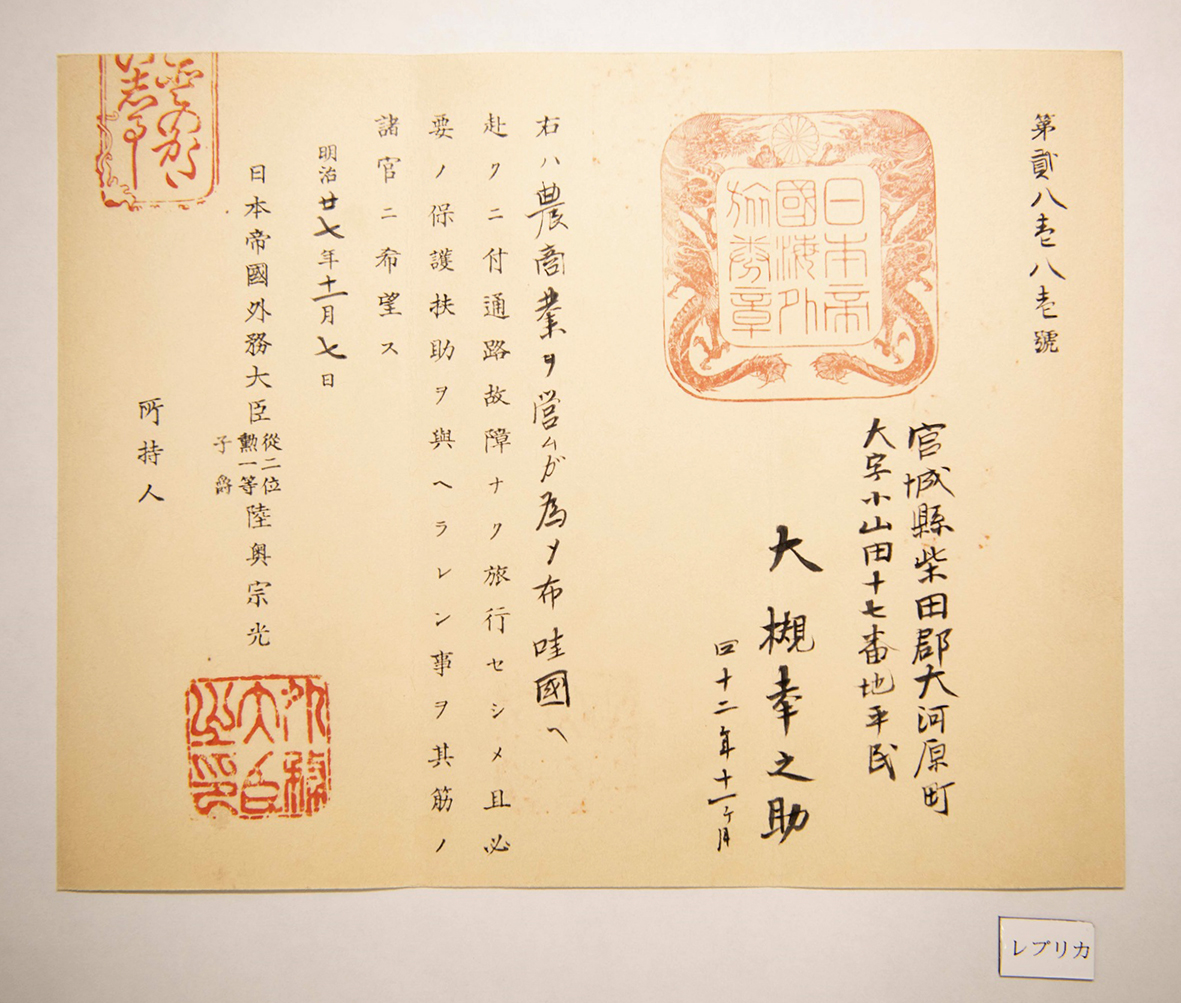 第貳八壱八壱號
宮城縣柴田郡大河原町
大字小山田十七番地平民
大槻幸之助
四十二年十一ケ月
日本帝
國海外
旅券章
右ハ農商業ヲ営ムガ為メ布哇國ヘ
赴クニ付通路故障ナク旅行セシメ且必
要ノ保護扶助ヲ與ヘラレン事ヲ其筋ノ
諸官ニ希望ス
明治廿七年十一月七日
日本帝國外務大臣從二位勲一等子爵陸奥宗光
外務
大臣
之印
所持人
レプリカ